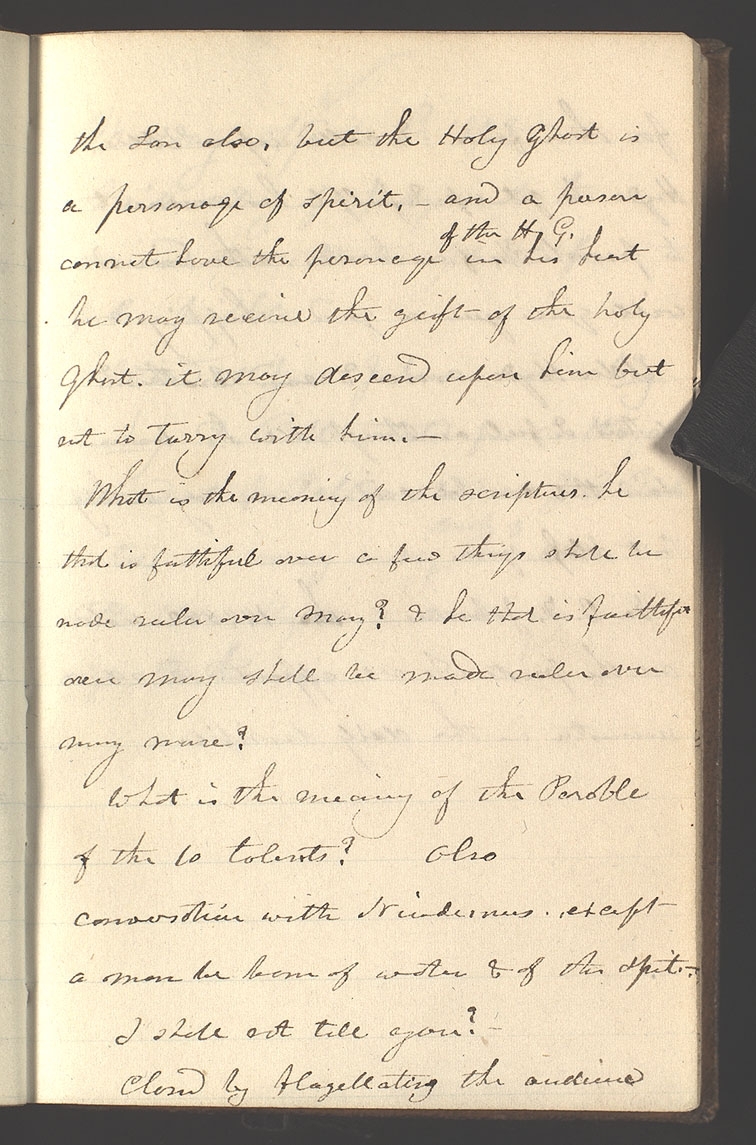 the Son also, but the Holy Ghost is
a personage of spirit. – and a person
of the H. G.
cannot have the personage in his heart
he may recieve the gift of the holy
Ghost. it may descend upon him but
not to tarry with him. –
What is the meaning of the scriptures. he
that is faithful over a few things shall be
made ruler over many? & he that is faithful
over many shall be made ruler over
many more?
What is the meaning of the Parable
of the 10 talents? Also
conversation with Nicodemus. except
a man be born of water & of the Spirit. –
I shall not tell you? –
Closed by flagellating the audience